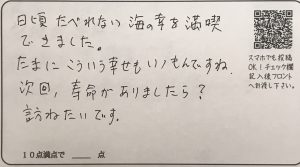 日頃たべれない海の幸を満喫
できました。
たまにこういう幸せもいいもんですね。
次回，寿命がありましたら？
訪ねたいです。
スマホでも投稿
OK！チェック欄
記入後フロント
へお渡し下さい。
10点満点で ____ 点